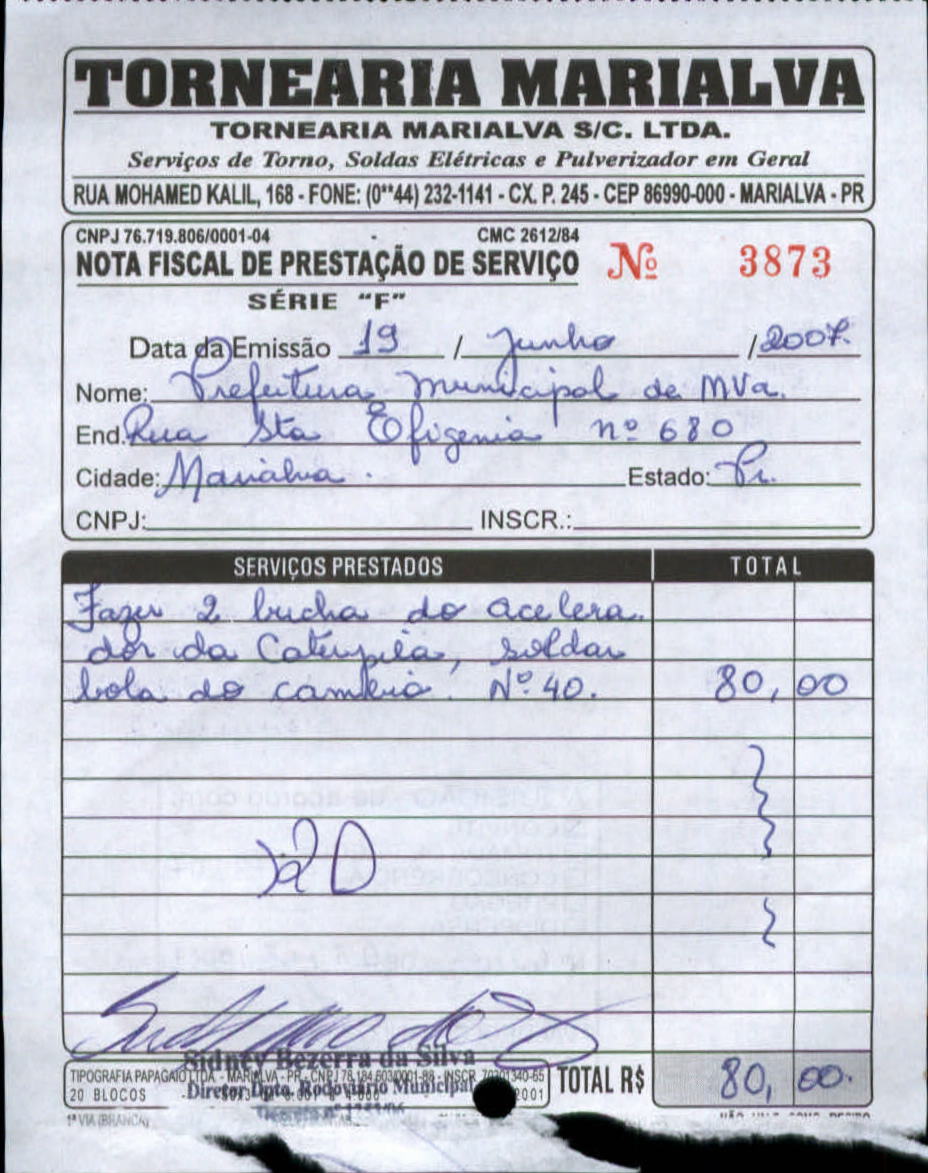 TORNEARIA MARIALVA
TORNEARIA MARIALVA S/C. LTDA.
Serviços de Torno, Soldas Elétricas e Pulverizador em Geral
RUA MOHAMED KALIL, 168 - FONE: (0**44) 232-1141 - CX. P. 245 - CEP 86990-000 - MARIALVA - PR
CNPJ 76.719.806/0001-04 CMC 2612/84
NOTA FISCAL DE PRESTAÇÃO DE SERVIÇO Nº 3873
SÉRIE "F"
Data da Emissão 19 / Junho / 2007.
Nome: Prefeitura Municipal de MVa.
End. Rua Sta Efigenia nº 680
Cidade: Marialva. Estado: Pr.
CNPJ: INSCR.:
SERVIÇOS PRESTADOS TOTAL
Fazer 2 bucha do acelera
dor da Caterpila, soldar
bola do cambio. Nº 40. 80,00
Sidney Bezerra da Silva
TIPOGRAFIA PAPAGAIO LTDA. - MARIALVA - PR - CNPJ
Diretor Dpto. Rodoviário Municipal
20 BLOCOS 2001 TOTAL R$ 80,00.
1ª VIA (BRANCA)